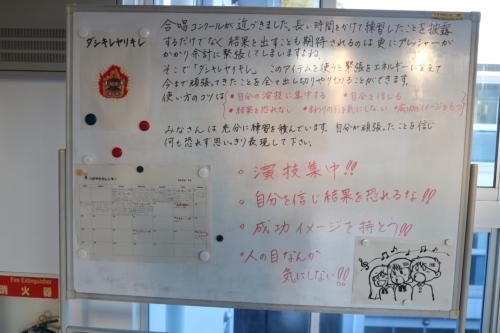 ダシキレヤリキレ
合唱コンクールが近づきました。長い時間をかけて練習したことを披露
するだけでなく結果を出すことも期待されるのは更にプレッシャーが
かかり余計に緊張してしまいますよね
そこで「ダシキレヤリキレ」このアイテムを使うと緊張をエネルギーに変えて
今まで頑張ってきたことを全て出し切りやりきることができます
使い方のコツは
・自分の演技に集中する ・自分を信じる
・結果を恐れない ・まわりの目を気にしない ・成功のイメージをもつ
みなさんは充分に練習を積んでいます。自分が頑張ったことを信じ
何も恐れず思いっきり表現して下さい。
・演技集中!!
・自分を信じ結果を恐れるな!!
・成功イメージを持とう!!
・人の目なんか
気にしない!!
Fire Extinguisher
消火器